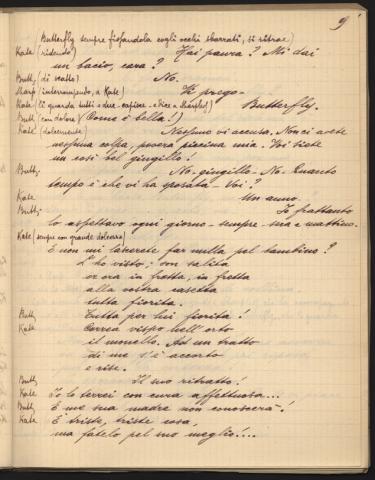 9
(Butterfly sempre fissandola cogli occhi sbarrati, si ritrae)
Kate (ridendo) Hai paura? Mi dai
un bacio, cara?
Butt. (di scatto) No.
Sharp (interrompendo, a Kate) Vi prego-
Kate (li guarda tutti e due, capisce - dice a Sharpless) Butterfly.
Butt (con dolore) Come è bella!
Kate (dolcemente) Nessuno vi accusa. Non ci avete
nessuna colpa, povera piccina mia. Voi siete
un così bel gingillo!
Butt. No - gingillo - No. Quanto
tempo è che vi ha sposata - Voi?
Kate Un anno.
Butt. Io frattanto
lo aspettavo ogni giorno - sempre - sera e mattino.
Kate (sempre con grande dolcezza)
E non mi lascerete far nulla pel bambino?
L'ho visto; son salita
or ora in fretta, in fretta
alla vostra casetta
tutta fiorita.
Butt Tutta per lui fiorita!
Kate Correa vispo nell'orto
il monello. Ad un tratto
di me s'è accorto
e rise.
Butt Il suo ritratto!
Kate Io lo terrei con cura affettuosa...
Butt E me sua madre non conoscerà!
Kate È triste, triste cosa,
ma fatelo pel suo meglio!...